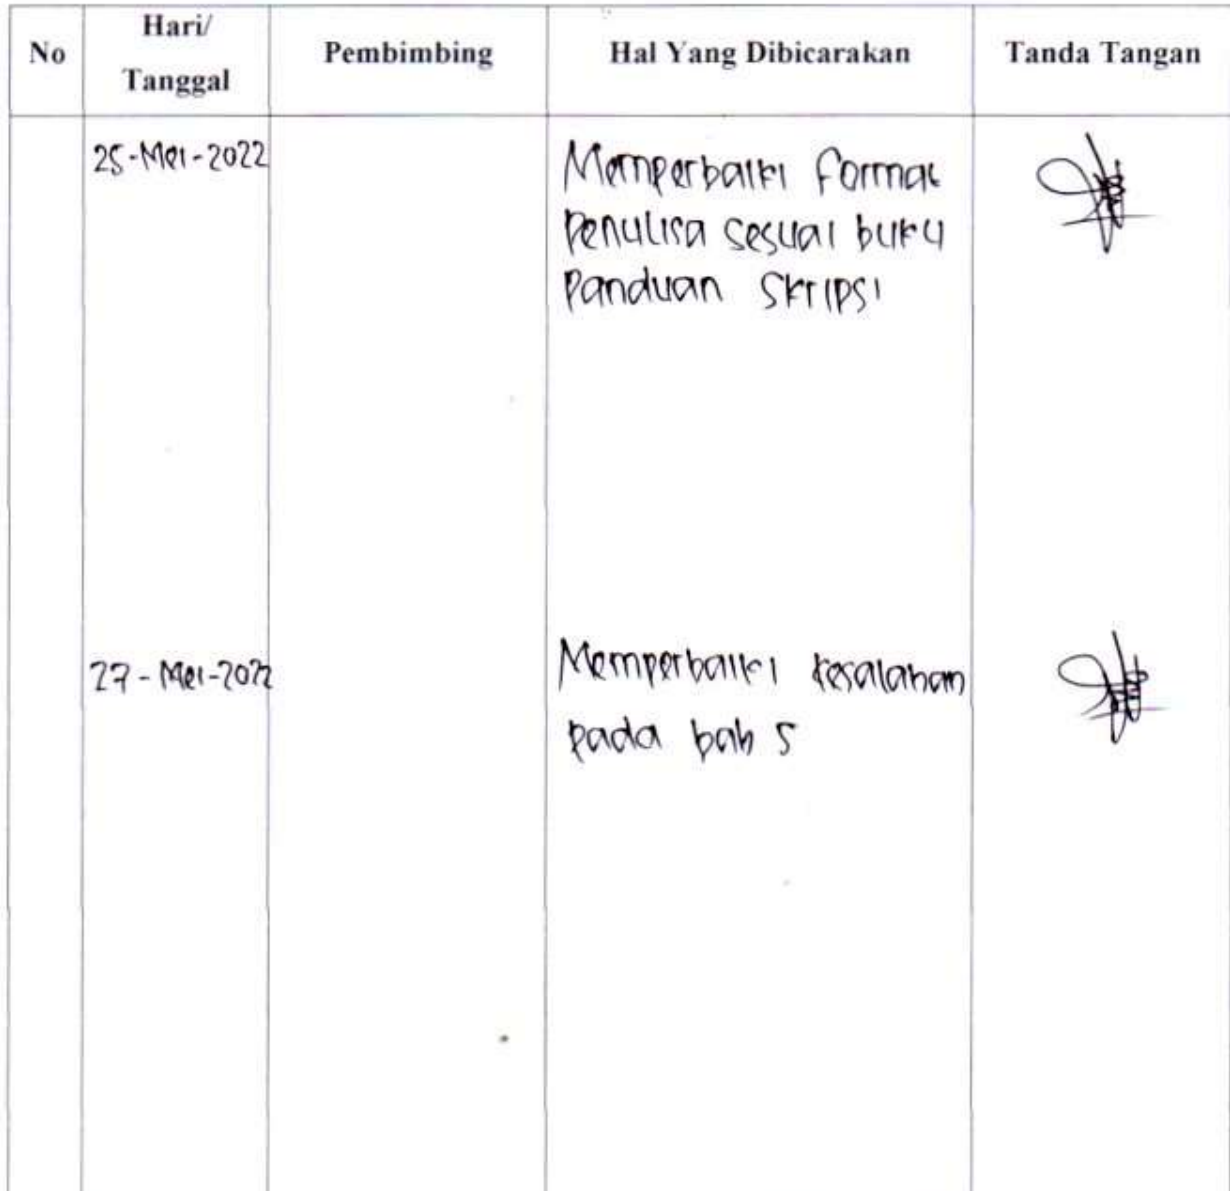 No
Hari/
Tanggal
Pembimbing
Hal Yang Dibicarakan
Tanda Tangan
25-Mei-2022
Memperbaiki format
Penulisa sesuai buku
Panduan Skripsi
27-Mei-2022
Memperbaiki kesalahan
pada bab 5